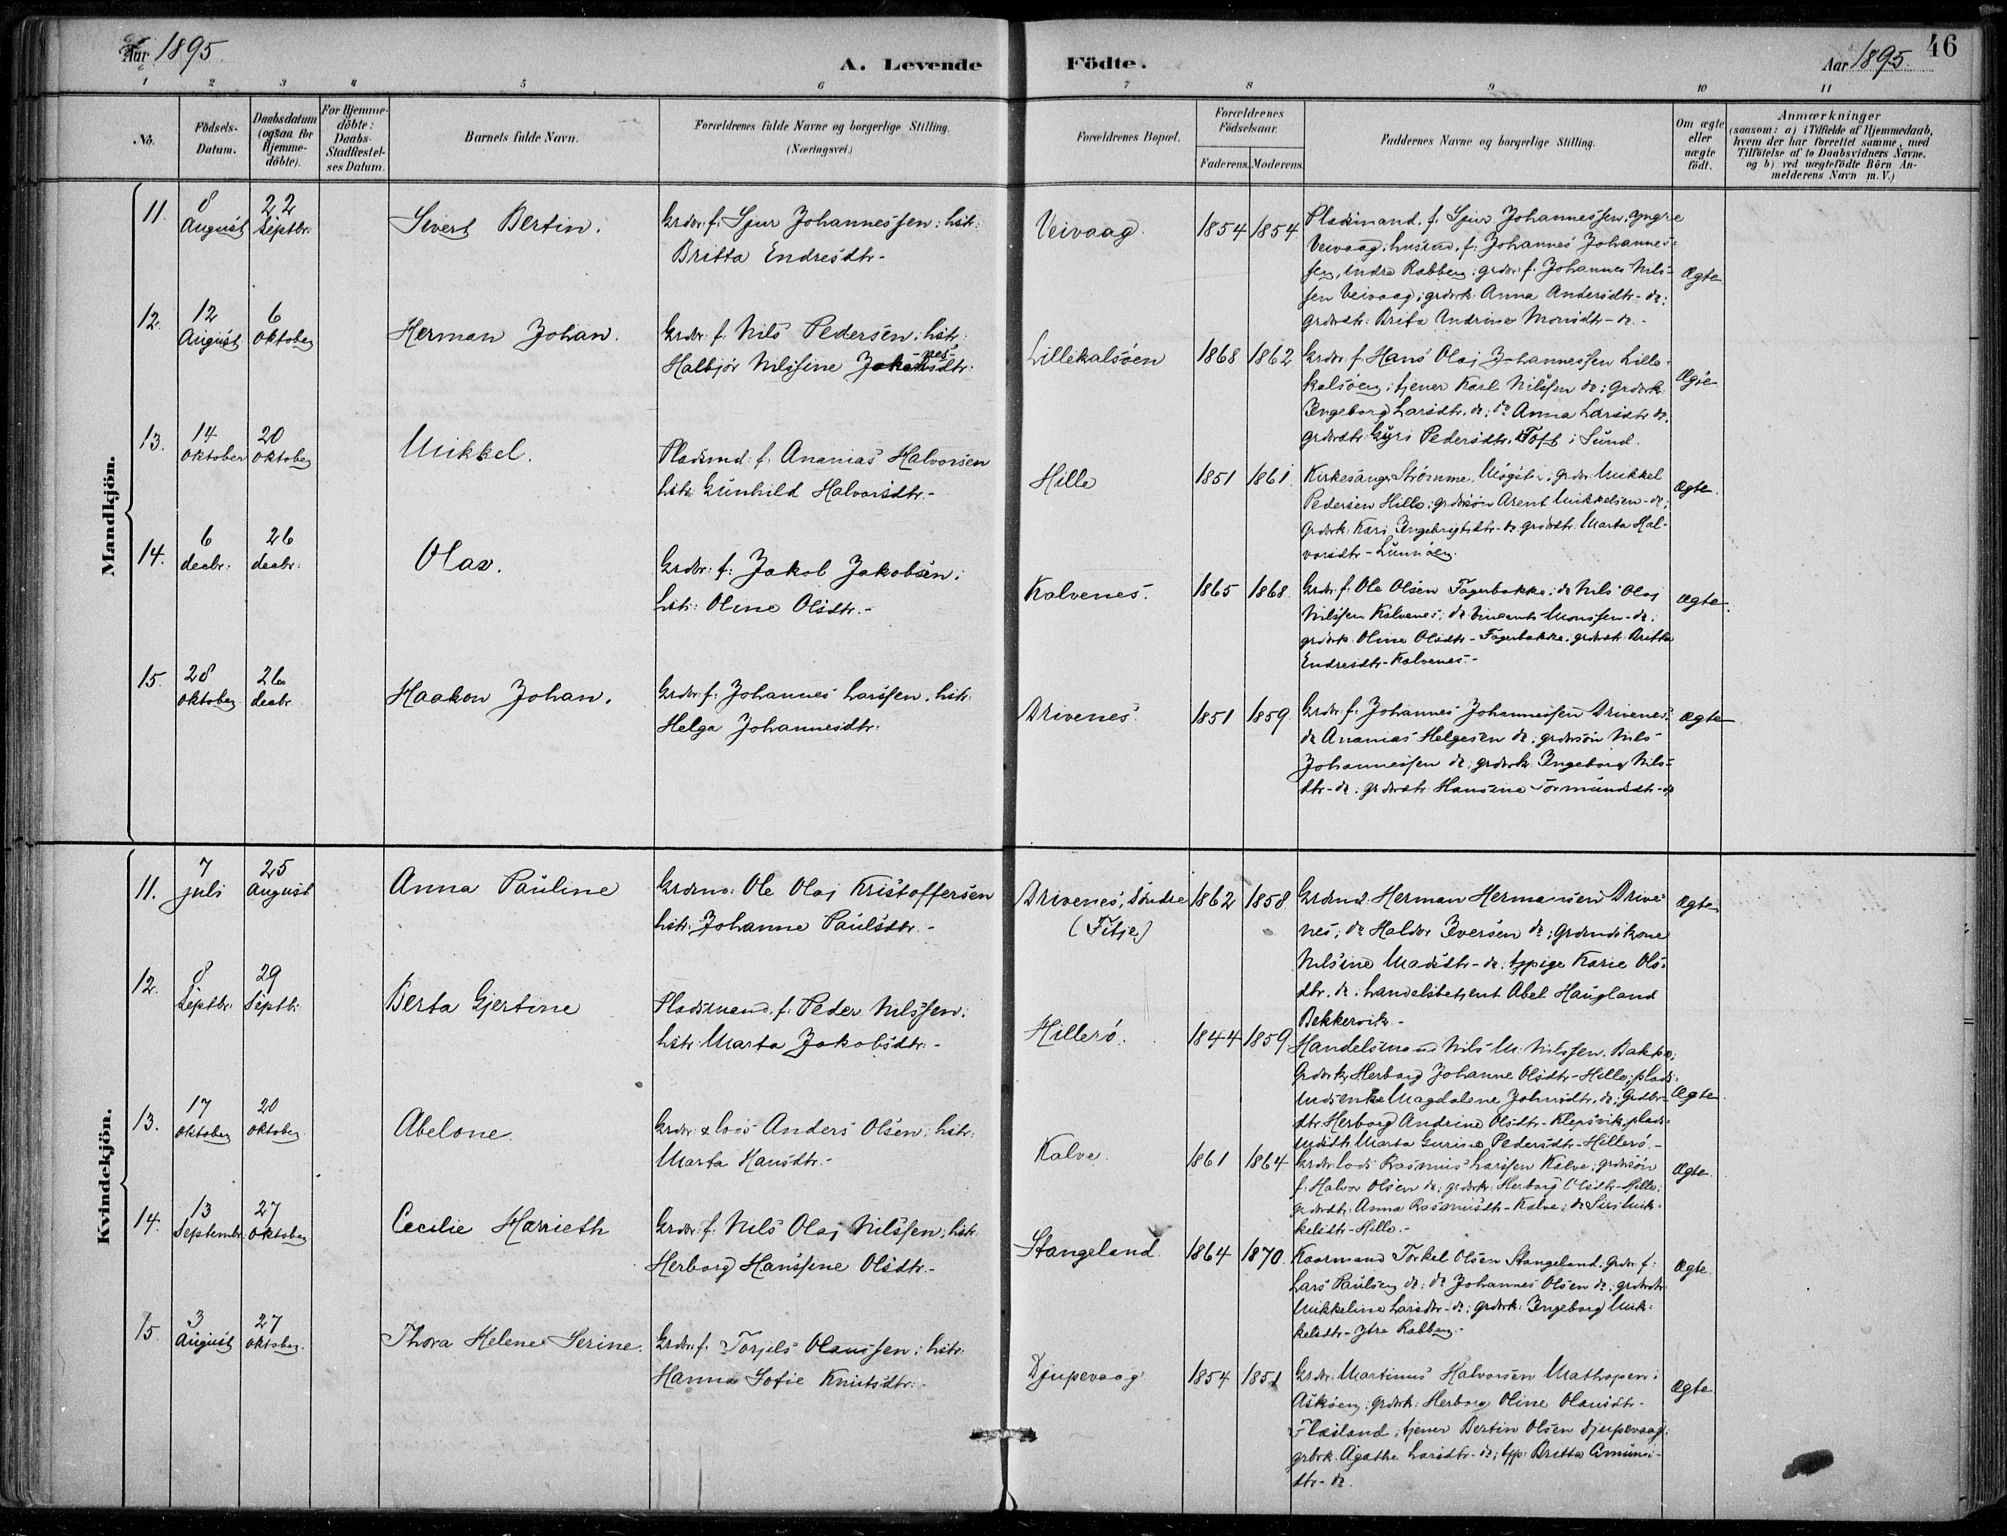 Aar 1895
A. Levende
Födte.
Aar 1895.
46
1 2 3 4 5 6 7 8 9 10 11
No.
Födsels-Datum.
Daabsdatum (ogsaa för Hjemme-döbte).
For Hjemme-döbte: Daabs-Stadfæstel-ses Datum.
Barnets fulde Navn.
Forældrenes fulde Navne og borgerlige Stilling. (Næringsvei.)
Forældrenes Bopæl.
Forældrenes Födselsaar.
Faderens. Moderens.
Faddernes Navne og borgerlige Stilling.
Om ægte eller uægte födt.
Anmærkninger
(saasom: a) i Tilfælde af Hjemmedaab,
hvem der har forrettet samme, med
Tilföielse af to Daabsvidners Navne,
og b) ved uægtefödte Börn An-
melderens Navn m. V.)
Mandkjön.
11. 8 August 22 Septbr. Sivert Bertin. Grdbr. f. Sjur Johannessen; hstr: Britta Endresdtr.- Veivaag. 1854 1854
Pladsmand. f. Sjur Johannessen, yngre
Veivaag; husmd. f. Johannes Johannes-
sen, indre Rabben; grdbr. f. Johannes Nils-
sen Veivaag; grdbrk. Anna Andersdtr- do;
grdbrdtr. Brita Andrine Monsdtr- do.-
Ægte
12. 12 August 6 Oktober Herman Johan. Grdbr. f. Nils Pedersen; hstr: Halbjör Nilssine Johannesdtr. Lillekalsöen 1868 1862
Grdbr. f. Hans Olaj Johannessen Lille-
kalsöen; tjener Karl Nilssen do; Grdbrk
Ingeborg Larsdtr. do; do Anna Larsdtr do.
grdbrdtr. Guri Pedersdtr. Toft i Sund.
Ægte
13. 14 Oktober 20 Oktober Mikkel. Pladsmd. f. Ananias Halvorsen hstr Gunhild Halvorsdtr.- Hille 1851 1861
Kirkesanger Strömme, Mögster, grdbr. Mikkel
Pedersen Hille; grdbrsön Arent Mikkelsen- do;
Grdbrk. Kari Ingebrigtsdtr- do grdbrdtr. Marta Hal-
vorsdtr-
Ægte.
14. 6 decbr. 26 decbr. Olav. Grdbr: f: Jakob Jakobsen; hstr: Oline Olsdtr.- Kalvenes. 1865 1868.
Grdbr. f. Ole Olsen Fagerbakke; do Nils Olaj
Nilssen Kalvenes; do Vincents Monssen- do;
grdbrk. Oline Olsdtr- Fagerbakke, grdbrdtr. Britta
Endresdtr- Kalvenes.-
Ægte.
15. 28 Oktober 26 decbr. Haakon Johan. Grdbr. f. Johannes Larssen, hstr. Helga Johannesdtr. Drivenes. 1851 1859
Grdbr. f. Johannes Johannessen Drivenes;
do Ananias Helgesen do; grdbrsön Nils
Johannessen do; grdbrk. Ingeborg Nils-
dtr- do; grdbrdtr. Hansine Tormundsdtr- do
Ægte
Kvindekjön.
11. 7 juli 25 August Anna Pauline Grdmd. Ole Olaj Kristoffersen hstr. Johanne Paulsdtr.- Drivenes, söndre (Fitje) 1862 1858
Grdmd. Herman Hermansen Drive-
nes; do Haldor Iversen do; grdmdskone
Nilsine Madsdtr- do. typige Karie Ols-
dtr. do; handelsbetjent Abel Haugland
Bekkervik.-
Ægte
12. 8 Septbr. 29 Septbr. Berta Gjertine Pladsmand. f. Peder Nilssen; hstr. Marta Jakobsdtr.- Hillerö. 1844 1859
Handelsmand Nils M. Nilssen. Bakke;
Grdbrk. Herborg Johanne Olsdtr- Hille; plads-
mdsenke Magdalene Johnsdtr. do; Grdbr-
dtr Herborg Andrine Olsdtr- Klepsvik, plads-
mdsdtr. Marta Gurine Pedersdtr- Hillerö.-
Ægte
13. 17 Oktober 20 Oktober Abelone. Grdbr. & lods Anders Olsen; hstr: Marta Hansdtr.- Kalve. 1861 1864
Grdbr. lods Rasmus Larssen Kalve; grdbrsön
f. Halvor Olsen do; grdbrk. Herborg Olsdtr- Hille;
grdbrdtr. Anna Rasmusdtr- Kalve; do Siri Mik-
kelsdtr- Hille.-
Ægte
14. 13 Septembr. 27 Oktober Cecilie Harrieth Grdbr. f. Nils Olaj Nilssen; hstr: Herborg Hanssine Olsdtr.- Stangeland. 1864 1870.
Kaarmand Torkel Olsen Stangeland; Grdbr. f.
Lars Paulsen do; do Johannes Olsen do; grdbrdtr
Mikkeline Larsdtr- do; grdbrk. Ingeborg Mik-
kelsdtr- Ytre Rabben.-
Ægte.
15. 3 August 27 Oktober Thora Helene Serine. Grdbr. f. Torjels Olaussen; hstr: Hanna Sofie Knutsdtr.- Djupevaag 1854 1851
Grdbr. Martinus Halvorsen Mathopen i
Asköen; grdbrk. Herborg Oline Olausdtr-
tjener Bertin Olsen Djupevaag;
grbrk. Agathe Larsdtr- do; typ. Britta Amunds-
dtr- do.
Ægte